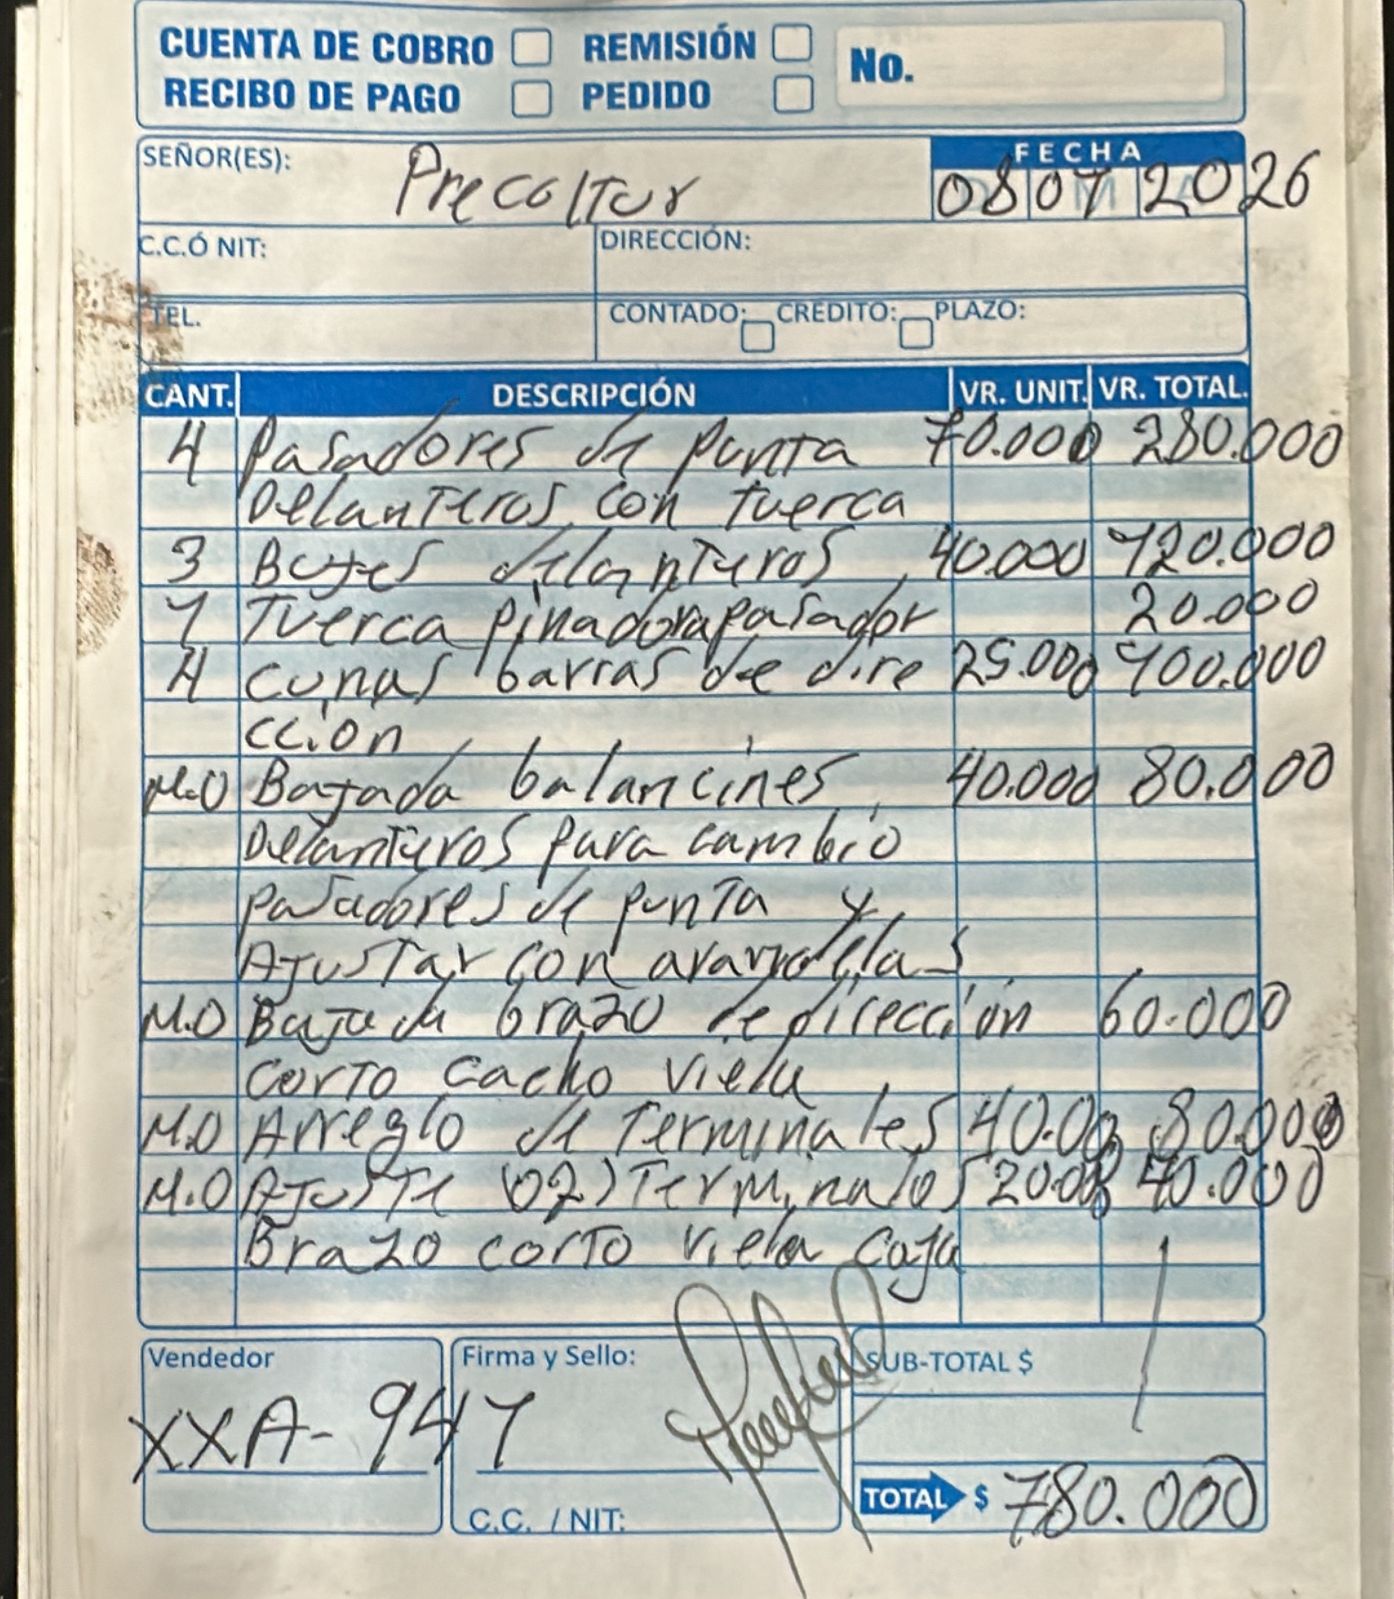 CUENTA DE COBRO REMISIÓN No.
RECIBO DE PAGO PEDIDO
SEÑOR(ES): Precoltur FECHA
08 07 2026
C.C.Ó NIT: DIRECCIÓN:
TEL. CONTADO: CRÉDITO: PLAZO:
CANT. DESCRIPCIÓN VR. UNIT. VR. TOTAL.
4 Pasadores de punta 70.000 280.000
Delanteros con tuerca
3 Bujes delanteros 40.000 120.000
1 Tuerca pinadora pasador 20.000
4 cunas barras de dire 25.000 100.000
cción
M.O Bajada balancines 40.000 80.000
Delanteros para cambio
pasadores de punta y
Ajustar con arandelas
M.O Bajada brazo de dirección 60.000
corto cacho viela
M.O Arreglo de Terminales 40.00 80.000
M.O Ajuste (02) Terminales 20.00 40.000
Brazo corto viela caja
Vendedor Firma y Sello: SUB-TOTAL $
XXA-941
C.C. / NIT: TOTAL $ 780.000